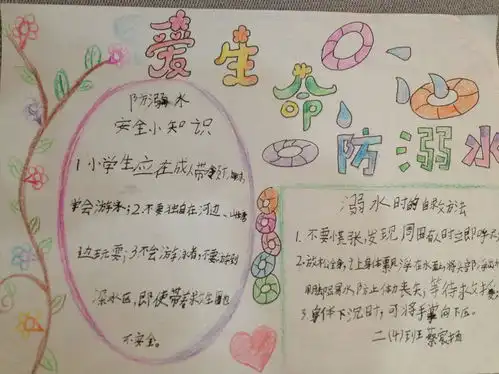 爱生命
防溺水
防溺水
安全小知识
1小学生应在成人带领下
学会游泳;2.不要独自在河边、山塘
边玩耍;3不会游泳者,不要游到
深水区,即使带着救生圈也
不安全。
溺水时的自救方法
1.不要慌张,发现周围有人时立即呼
2.放松全身,
用脚踢水,防止体力丧失,等待救援
3.身体下沉时,可将手掌向下压。
二(4)班